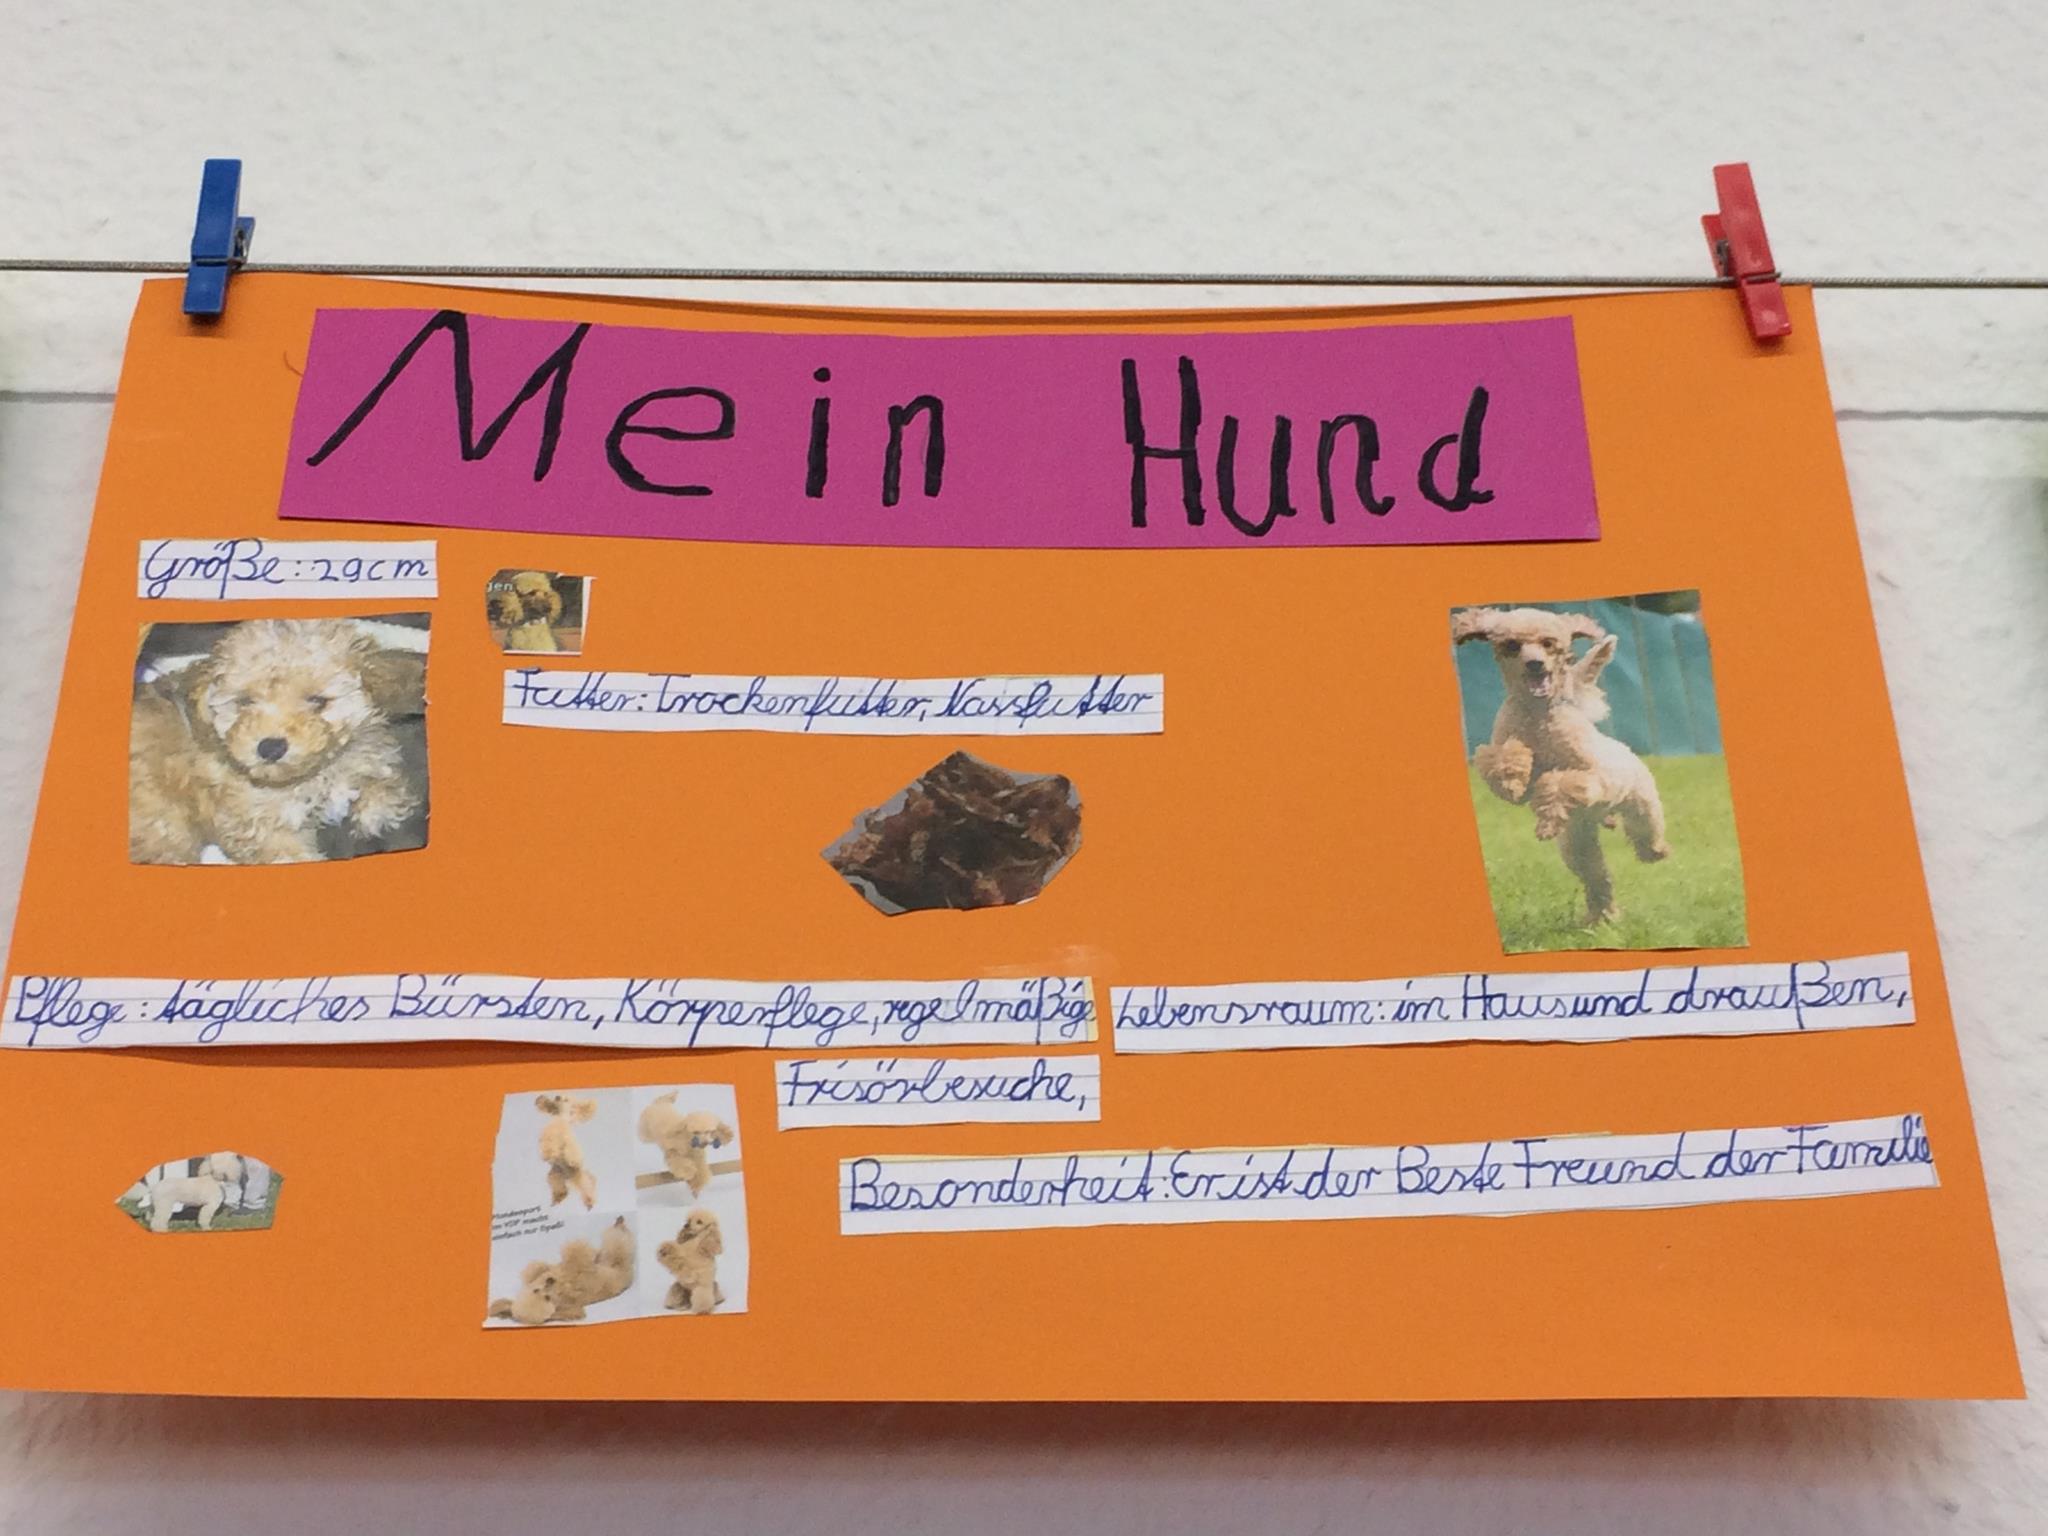 Mein Hund
Größe: 29cm
gen
Futter: Trockenfutter, Nassfutter
Pflege: tägliches Bürsten, Körperflege, regelmäßige
Frisörbesuche,
Lebensraum: im Haus und draußen,
Besonderheit: Er ist der Beste Freund der Familie
Hundesport
im VDP macht
einfach nur Spaß!